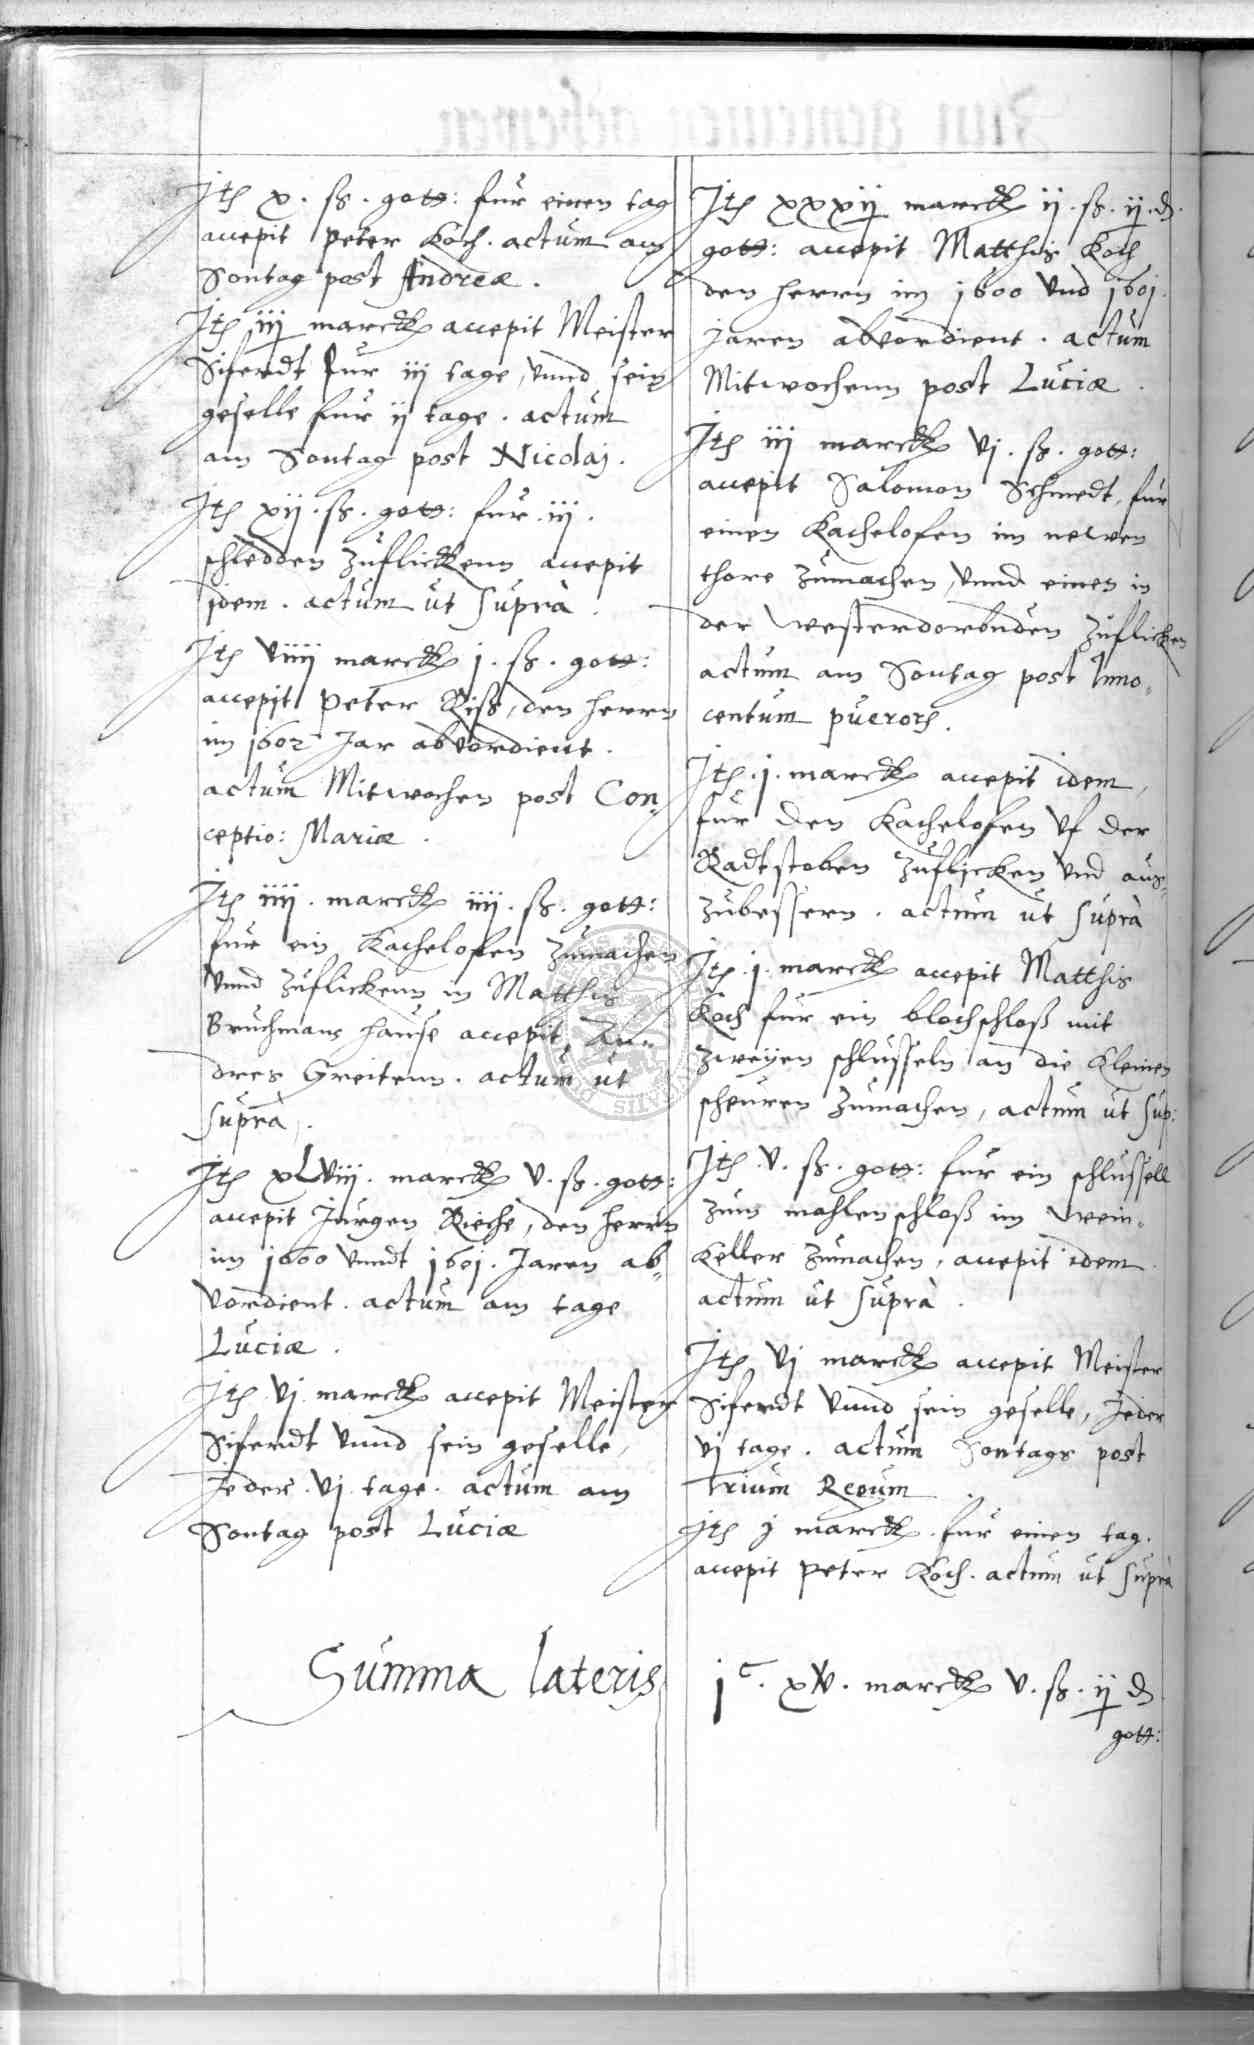 Jtem x. ß. gott: fur einen tag
accepit Peter Koch. actum am
Sontag post Andreæ.
Jtem iij marck accepit Meister
Siferdt fur iij tage, vnnd sein
geselle fur ij tage. actum
am Sontag post Nicolaj.
Jtem xij. ß. gott: fur iij.
schledden zuflickenn accepit
idem. actum ut suprà.
Jtem viiij marck j. ß. gott:
accepit Peter Riß, den herrn
im 1602 Jar abvordient.
actum Mitwochen post Con,
ceptio: Mariæ.
Jtem iiij. marck iiij. ß. gott:
fur ein Kachelofen zumachen
vnnd zuflickenn in Matthis
Bruchmans hause accepit, An,,
dres Greitenn. actum ut
suprà.
Jtem xLviij. marck v. ß. gott:
accepit Jurgen Rieche, den herrn
im 1600 vnndt 1601. Jaren ab,,
vordient. actum am tage
Luciæ.
Jtem vj. marck accepit Meister
Siferdt vnnd sein geselle,
Jeder. vj. tage. actum am
Sontag post Luciæ
Summa lateris
Jtem xxxij marck ij. ß. ij. d.
gott: accepit Matthis Koch
den herrn im 1600 vnd 1601.
Jaren abvordient. actum
Mitwochenn post Luciæ.
Jtem iij marck vj. ß. gott:
accepit Salomon Schmedt, fur
einen Kachelofen im newen
thore zumachen, vnnd einen in
der zuflicken
actum am Sontag post Inno,,
centum puerorum.
Jtem. j. marck accepit idem,
fur den Kachelofen vf der
Radtstoben zuflicken vnd aus,,
zubessern. actum ut suprà
Jtem. j. marck accepit Matthis
Koch fur ein blochschloß mit
zweyen schlusseln an die kleinen
scheuren zumachen, actum ut sup:
Jtem. v. ß. gott: fur ein schlussell
zum mahlenschloß im wein,,
keller zumachen, accepit idem
actum ut suprà.
Jtem vj marck accepit Meister
Siferdt vnnd sein geselle, Jeder
vj tage. actum Sontags post
Trium Regum.
Jtem j marck. fur einen tag.
accepit Peter Koch. actum ut suprà
jc. xv. marck v. ß. ij d
gott: